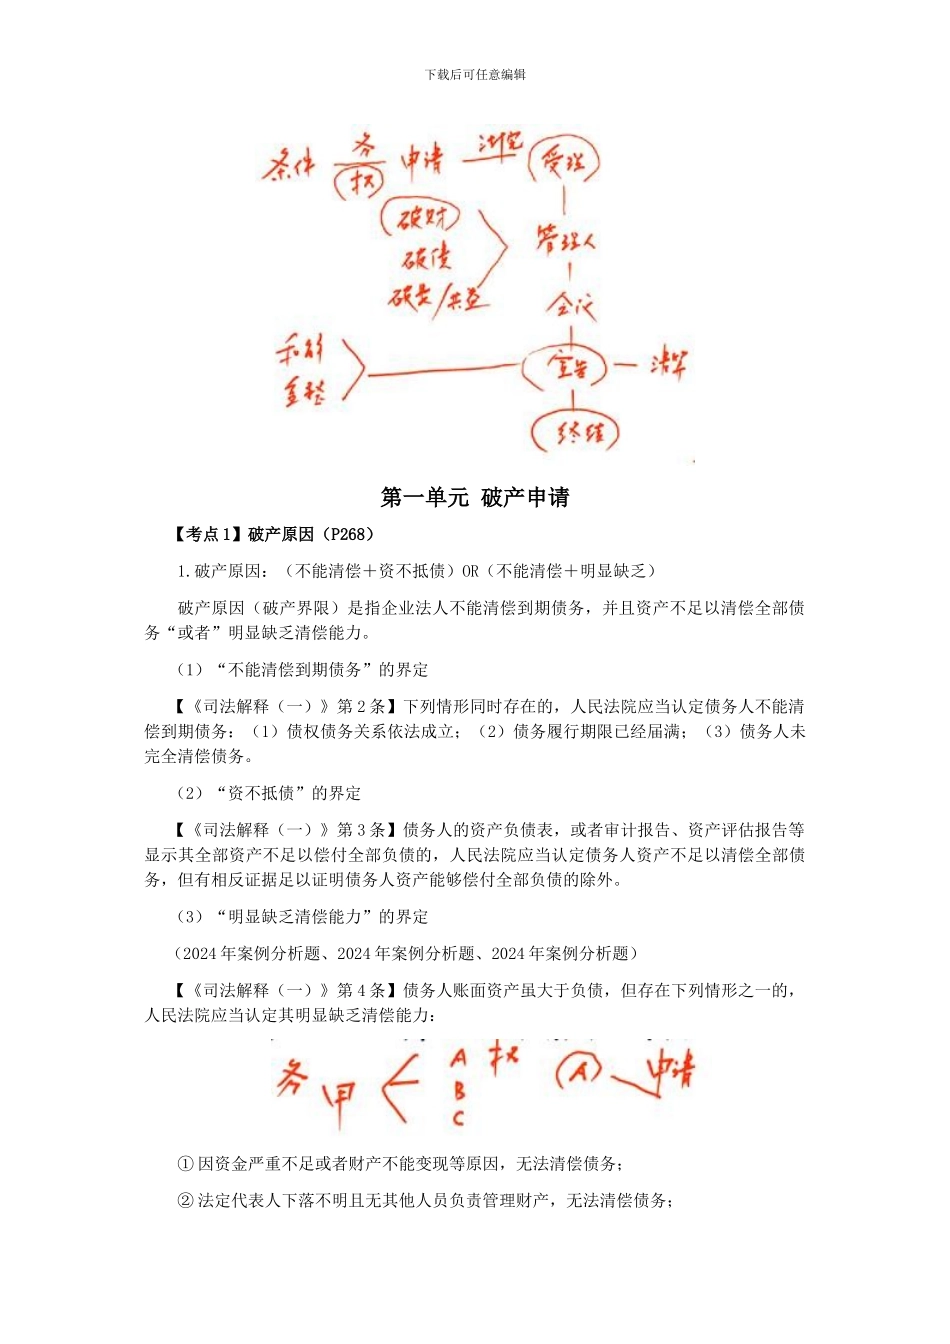 下载后可任意编辑
条件 务 申请 法院 受理
权
破财
破债 管理人
破费/共益 会议
和解
重整 宣告 清算
终结
第一单元 破产申请
【考点1】破产原因（P268）
1.破产原因：（不能清偿＋资不抵债）OR（不能清偿＋明显缺乏）
破产原因（破产界限）是指企业法人不能清偿到期债务，并且资产不足以清偿全部债
务“或者”明显缺乏清偿能力。
（1）“不能清偿到期债务”的界定
【《司法解释（一）》第2条】下列情形同时存在的，人民法院应当认定债务人不能清
偿到期债务：（1）债权债务关系依法成立；（2）债务履行期限已经届满；（3）债务人未
完全清偿债务。
（2）“资不抵债”的界定
【《司法解释（一）》第3条】债务人的资产负债表，或者审计报告、资产评估报告等
显示其全部资产不足以偿付全部负债的，人民法院应当认定债务人资产不足以清偿全部债
务，但有相反证据足以证明债务人资产能够偿付全部负债的除外。
（3）“明显缺乏清偿能力”的界定
（2024年案例分析题、2024年案例分析题、2024年案例分析题）
【《司法解释（一）》第4条】债务人账面资产虽大于负债，但存在下列情形之一的，
人民法院应当认定其明显缺乏清偿能力：
务 甲 A 权 A 申请
B
C
①因资金严重不足或者财产不能变现等原因，无法清偿债务；
②法定代表人下落不明且无其他人员负责管理财产，无法清偿债务；